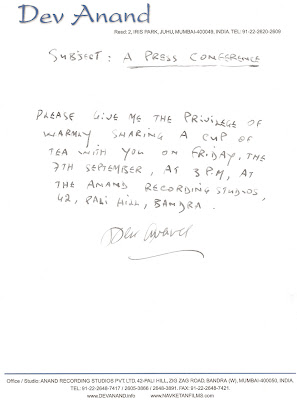 Dev Anand
Resd: 2, IRIS PARK, JUHU, MUMBAI-400049, INDIA. TEL: 91-22-2620-2609
SUBJECT: A PRESS CONFERENCE
PLEASE GIVE ME THE PRIVILEGE OF
WARMLY SHARING A CUP OF
TEA WITH YOU ON FRIDAY, THE
7TH SEPTEMBER, AT 3 P.M, AT
THE ANAND RECORDING STUDIOS,
42, PALI HILL, BANDRA.
Dev Anand
Office / Studio: ANAND RECORDING STUDIOS PVT. LTD, 42-PALI HILL, ZIG ZAG ROAD, BANDRA (W), MUMBAI-400050, INDIA.
TEL: 91-22-2648-7417 / 2605-3866 / 2646-3891. FAX: 91-22-2648-7421
www.DEVANAND.info www.NAVKETANFILMS.com